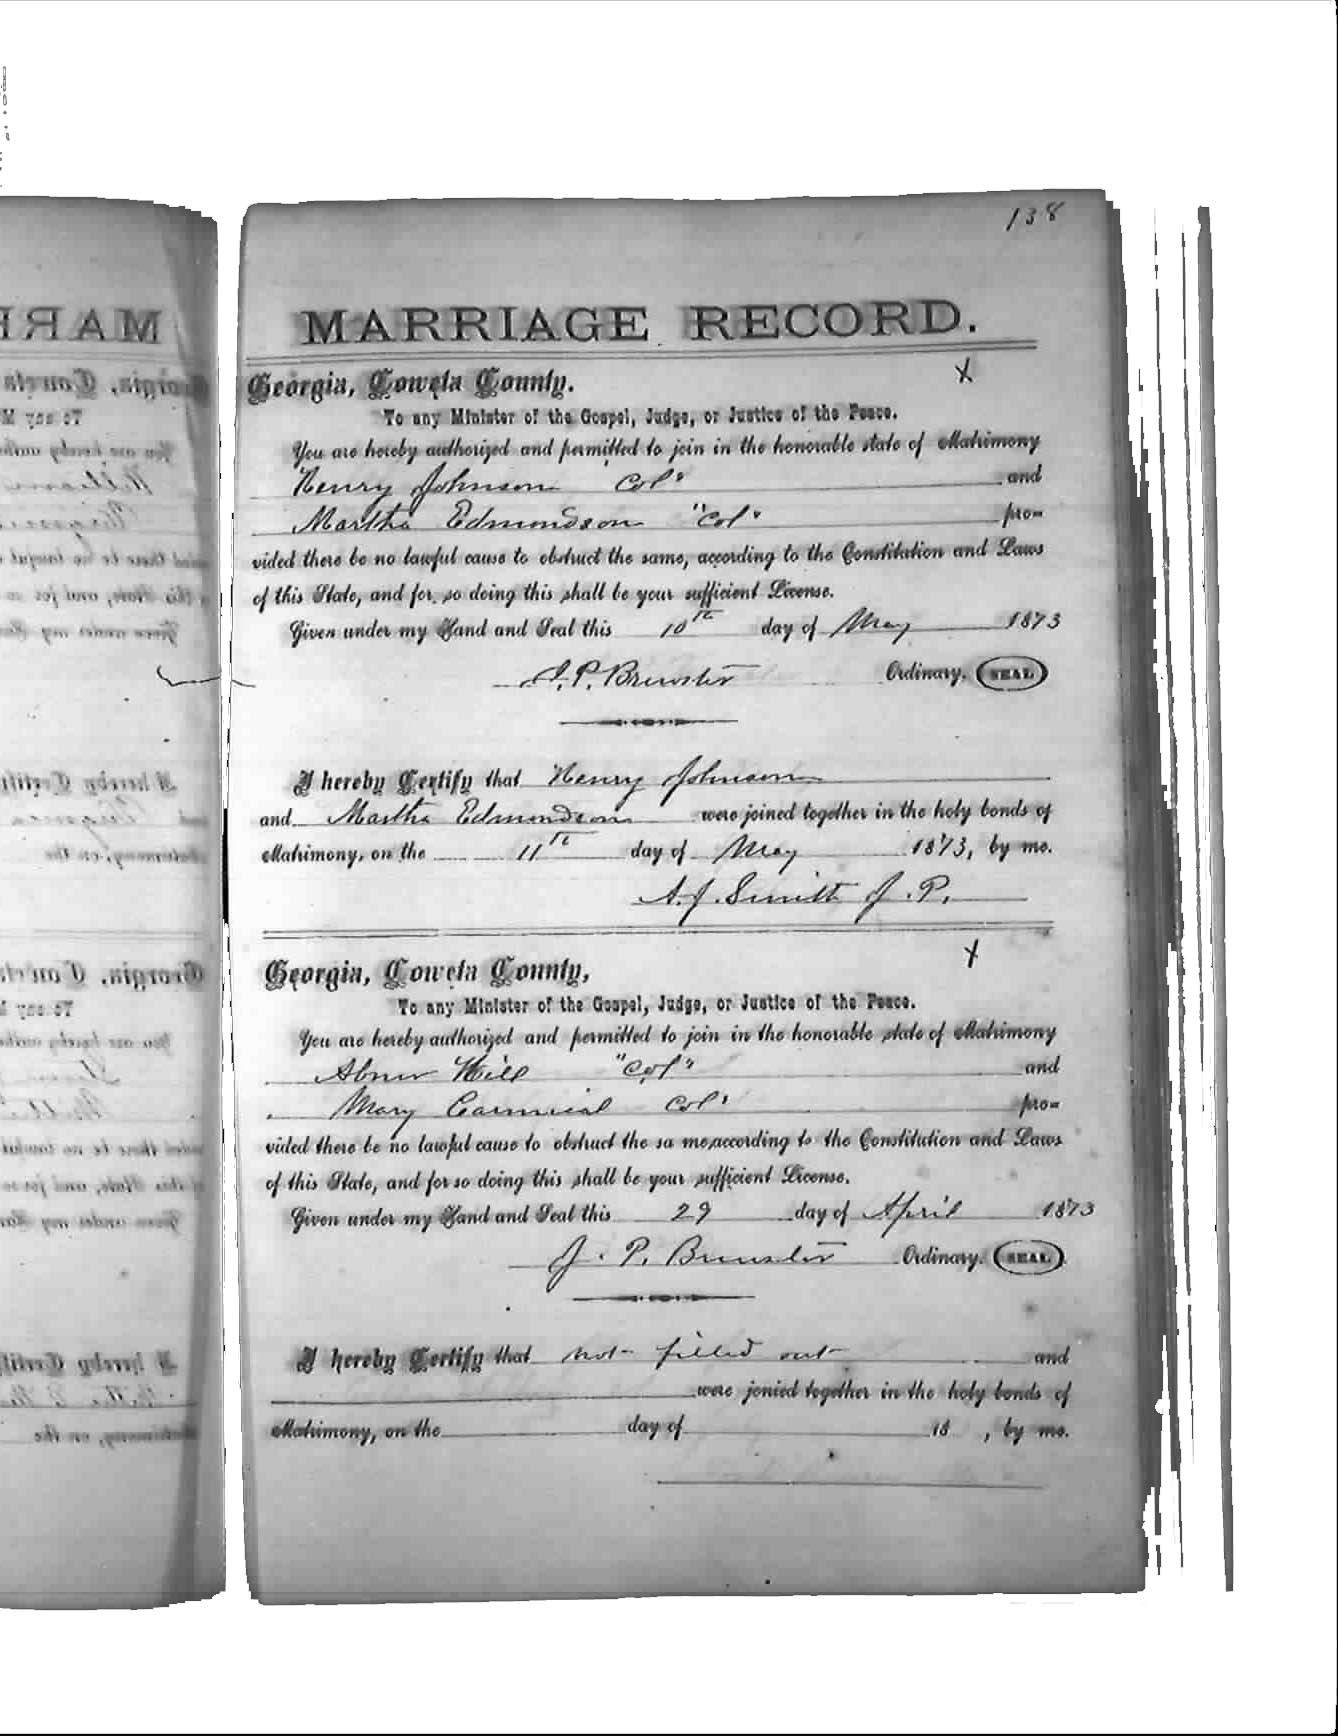 138
MARRIAGE RECORD.
Georgia, Coweta County.
X
To any Minister of the Gospel, Judge, or Justice of the Peace.
You are hereby authorized and permitted to join in the honorable state of Matrimony
Henry Johnson Col" and
Martha Edmondson "Col" pro=
vided there be no lawful cause to obstruct the same, according to the Constitution and Laws
of this State, and for so doing this shall be your sufficient License.
Given under my Hand and Seal this 10th day of May 1873
J. P. Brewster Ordinary. SEAL
I hereby Certify that Henry Johnson
and Martha Edmondson were joined together in the holy bonds of
Matrimony, on the 11th day of May 1873, by me.
A. J. Smith J. P.
Georgia, Coweta County,
X
To any Minister of the Gospel, Judge, or Justice of the Peace.
You are hereby authorized and permitted to join in the honorable state of Matrimony
Abner Hill "Col" and
Mary Carmical Col" pro=
vided there be no lawful cause to obstruct the sa me, according to the Constitution and Laws
of this State, and for so doing this shall be your sufficient License.
Given under my Hand and Seal this 29 day of April 1873
J. P. Brewster Ordinary. SEAL
I hereby Certify that not filled out and
were jonied together in the holy bonds of
Matrimony, on the day of 18 , by me.